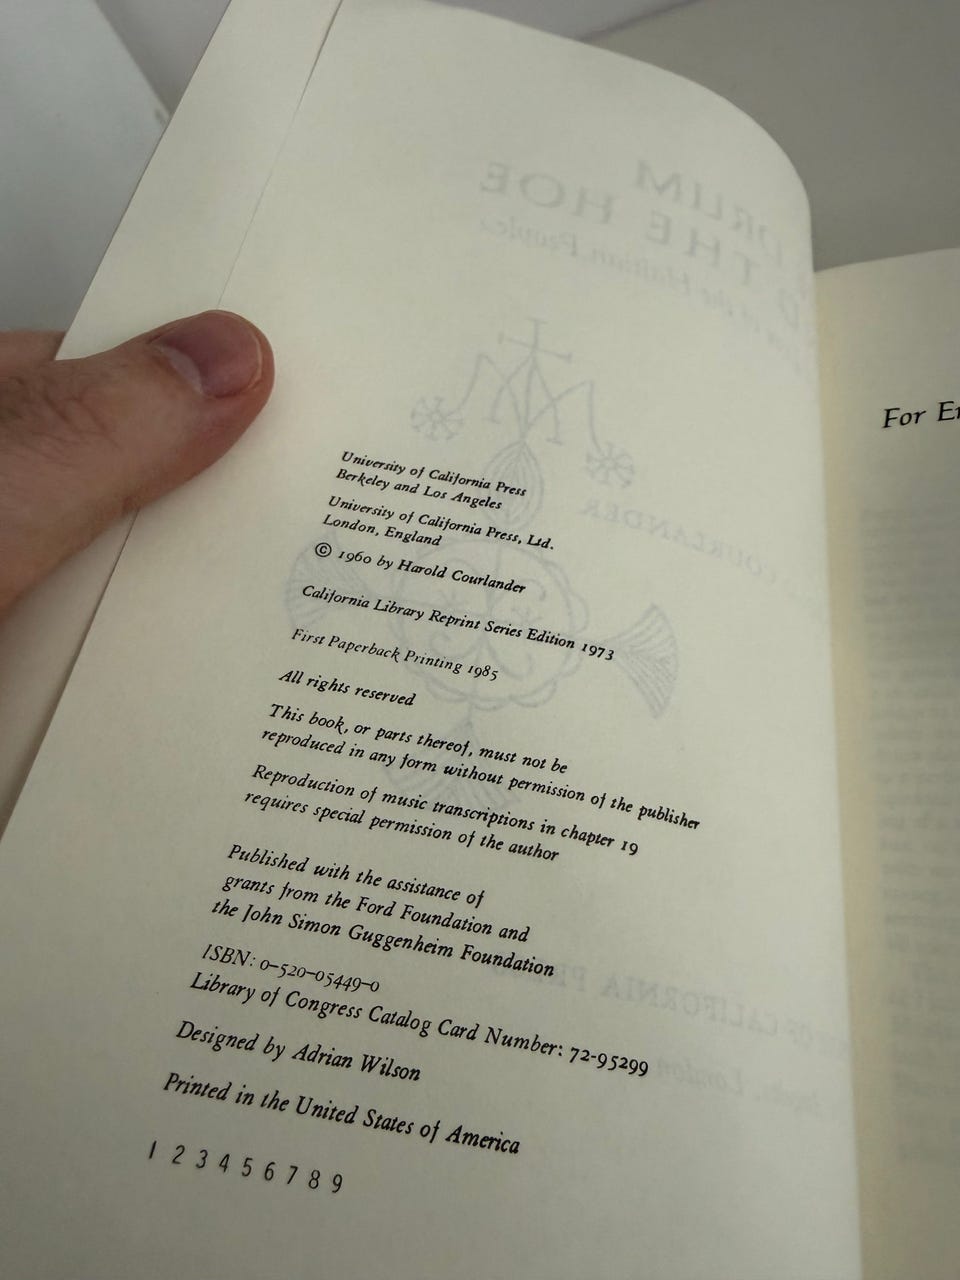 University of California Press
Berkeley and Los Angeles
University of California Press, Ltd.
London, England
© 1960 by Harold Courlander
California Library Reprint Series Edition 1973
First Paperback Printing 1985
All rights reserved
This book, or parts thereof, must not be
reproduced in any form without permission of the publisher
Reproduction of music transcriptions in chapter 19
requires special permission of the author
Published with the assistance of
grants from the Ford Foundation and
the John Simon Guggenheim Foundation
ISBN: 0-520-05449-0
Library of Congress Catalog Card Number: 72-95299
Designed by Adrian Wilson
Printed in the United States of America
1 2 3 4 5 6 7 8 9
For